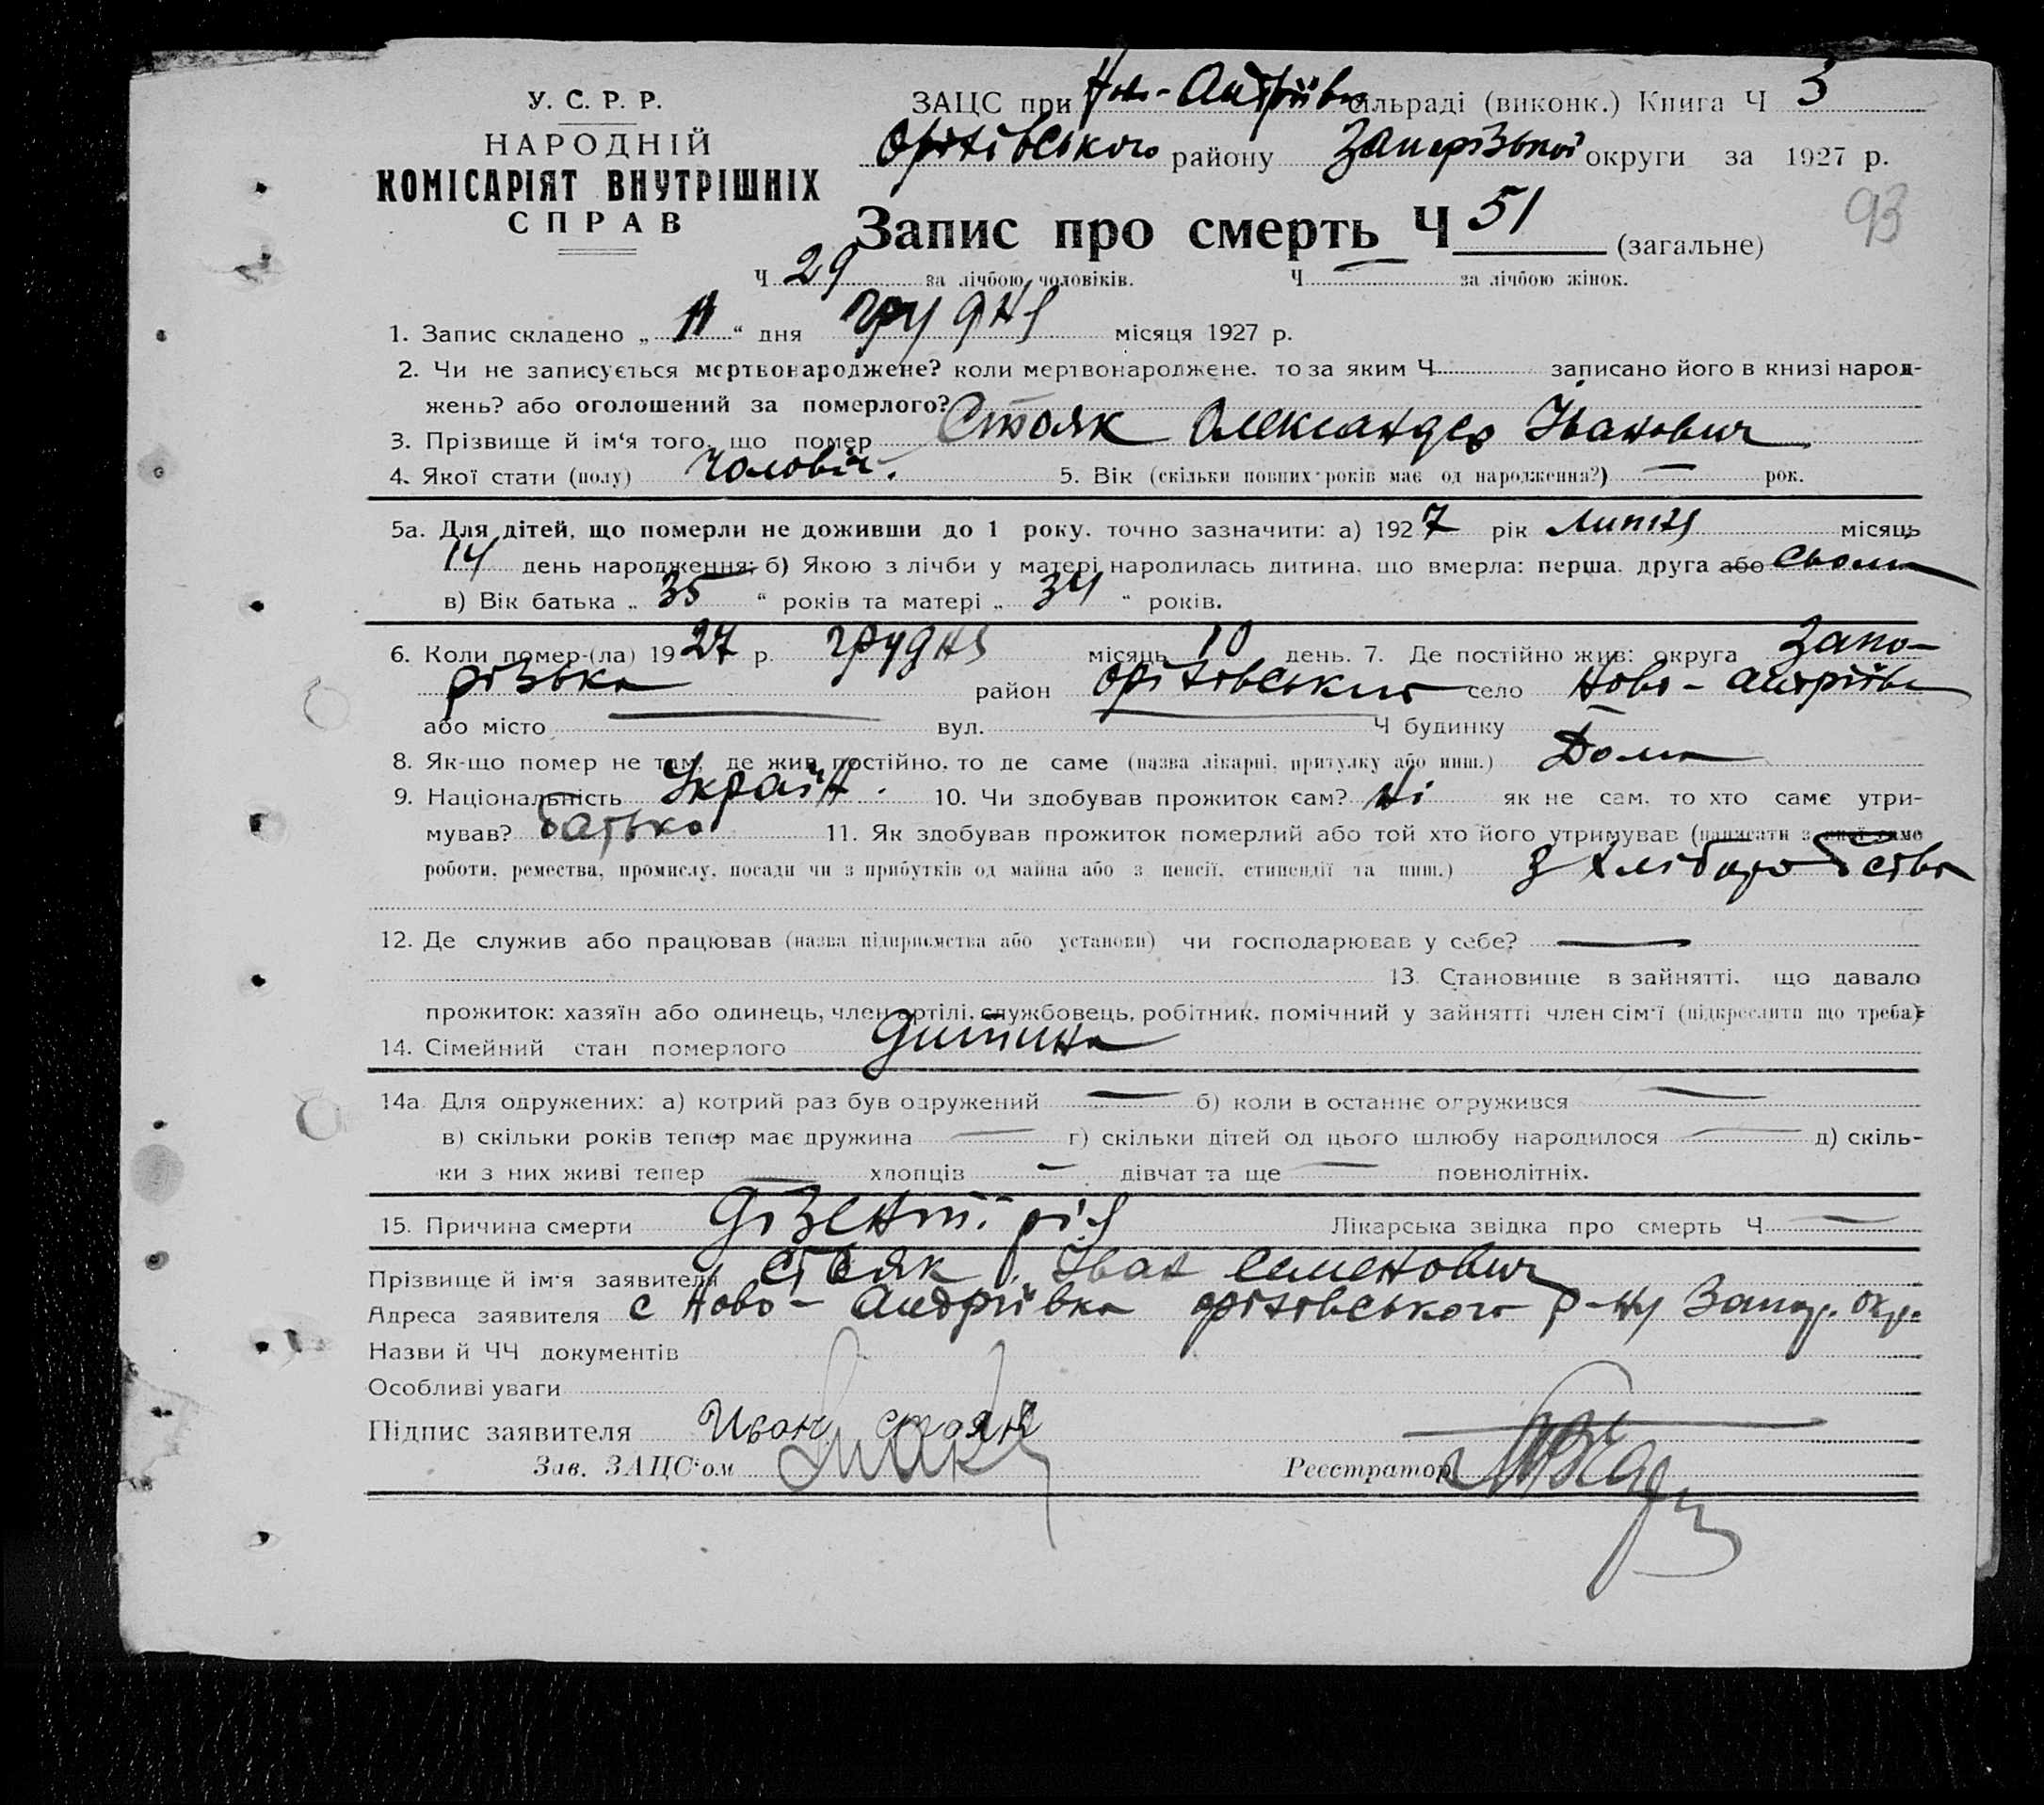 У. С. Р. Р.
НАРОДНІЙ
КОМІСАРІЯТ ВНУТРІШНІХ
СПРАВ
ЗАЦС при Ново-Андріївк сільраді (виконк.) Книга Ч 3
Оріхівського району Запорізької округи за 1927 р.
93
Запис про смерть Ч 51 (загальне)
Ч 29 за лічбою чоловіків. Ч — за лічбою жінок.
1. Запис складено „ 11 “ дня грудня місяця 1927 р.
2. Чи не записується мертвонароджене? коли мертвонароджене, то за яким Ч записано його в книзі народ-
жень? або оголошений за померлого?
3. Прізвище й ім'я того, що помер Стояк Олександер Іванович
4. Якої стати (полу) чоловіч. 5. Вік (скільки повних років має од народження?) — рок.
5а. Для дітей, що померли не доживши до 1 року, точно зазначити: а) 1927 рік липня місяць
14 день народження; б) Якою з лічби у матері народилась дитина, що вмерла: перша, друга або сьома
в) Вік батька „ 35 “ років та матері „ 34 “ років.
6. Коли помер-(ла) 1927 р. грудня місяць 10 день. 7. Де постійно жив: округа Запо-
різька район Оріхівський село Ново-Андріївк
або місто — вул. — Ч будинку —
8. Як-що помер не там, де жив постійно, то де саме (назва лікарні, притулку або инш.) Дома
9. Національність Україн. 10. Чи здобував прожиток сам? Ні як не сам, то хто саме утри-
мував? батько 11. Як здобував прожиток померлий або той хто його утримував (написати з якої само
роботи, ремества, промислу, посади чи з прибутків од майна або з пенсії, стипендії та инш.) З хліборобства
12. Де служив або працював (назва підприємства або установи) чи господарював у себе? —
13. Становище в зайнятті, що давало
прожиток: хазяїн або одинець, член артілі, службовець, робітник, помічний у зайнятті член сім'ї (підкреслити що треба)
14. Сімейний стан померлого дитина
14а. Для одружених: а) котрий раз був одружений — б) коли в останнє одружився —
в) скільки років тепер має дружина — г) скільки дітей од цього шлюбу народилося — д) скіль-
ки з них живі тепер — хлопців — дівчат та ще — повнолітніх.
15. Причина смерти дізентирія Лікарська звідка про смерть Ч —
Прізвище й ім'я заявителя Стояк Іван Семенович
Адреса заявителя с Ново-Андріївка Оріхівського р-ну Запор. окр.
Назви й ЧЧ документів
Особливі уваги
Підпис заявителя Иван Стояк
Зав. ЗАЦС'ом Реєстратор